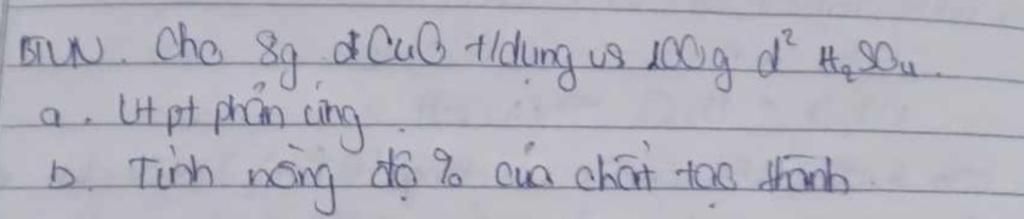 BTVN. Cho 8g CuO t/dụng vs 100g d² H₂SO₄.
a. Vt pt phản ứng.
b. Tính nồng độ % của chất tạo thành.